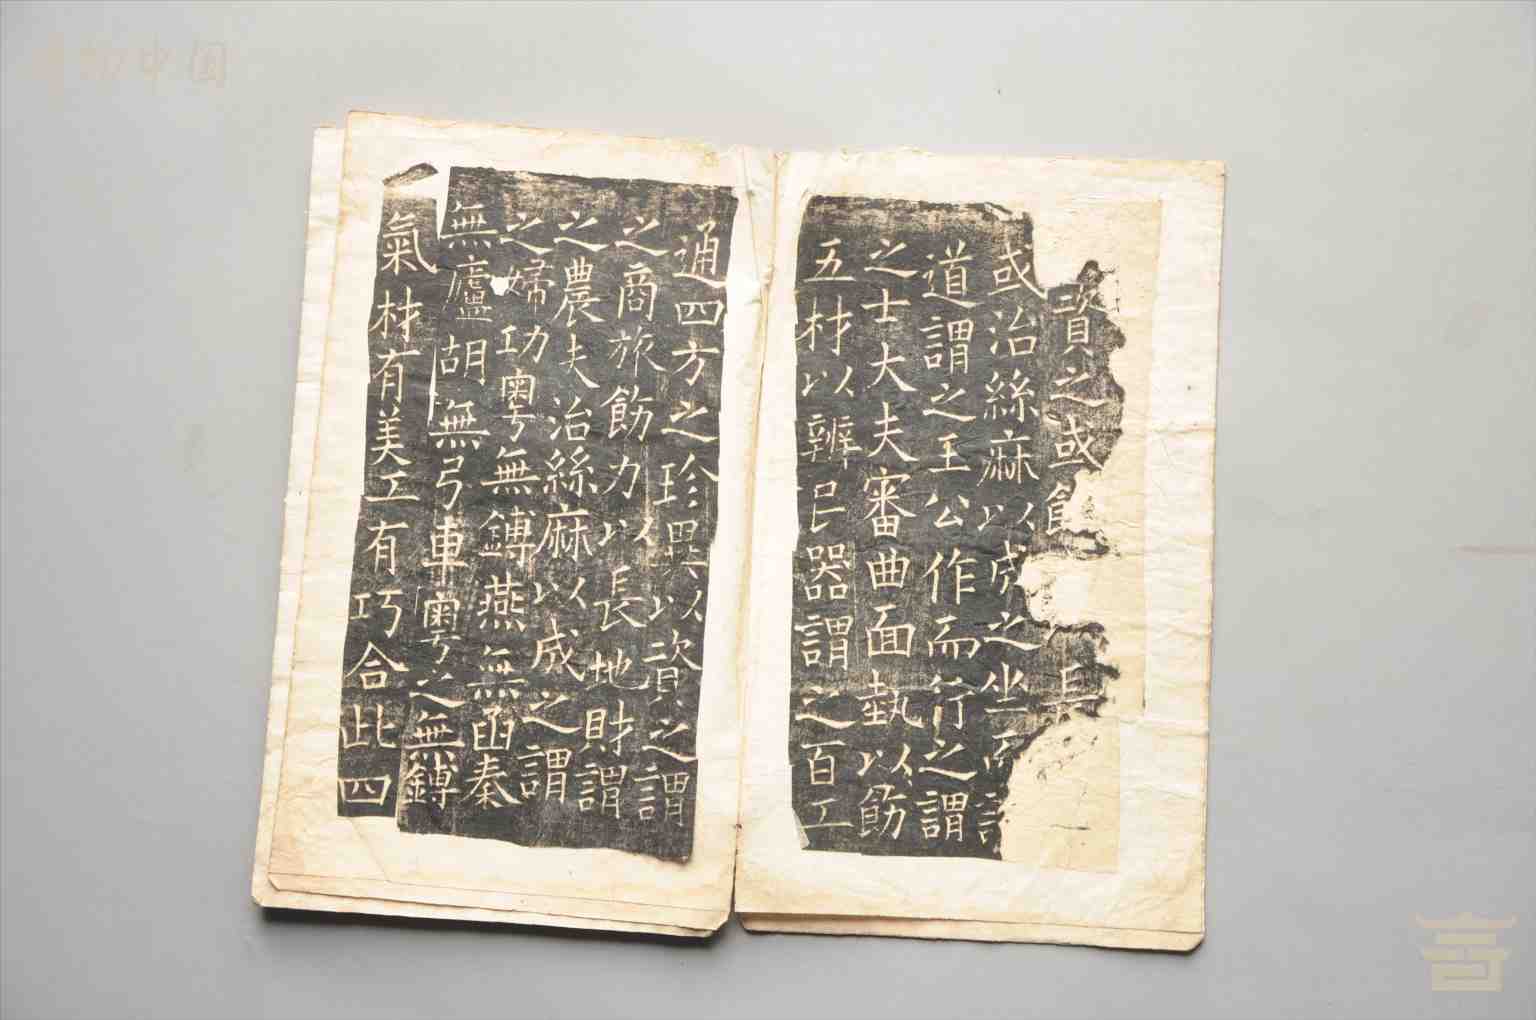 資之或飭長
或治絲麻以成之坐而
道謂之王公作而行之謂
之士大夫審曲面埶以飭
五材以辨民器謂之百工
通四方之珍異以資之謂
之商旅飭力以長地財謂
之農夫治絲麻以成之謂
之婦功粵無鎛燕無函秦
無廬胡無弓車粵之無鎛
氣材有美工有巧合此四
中国